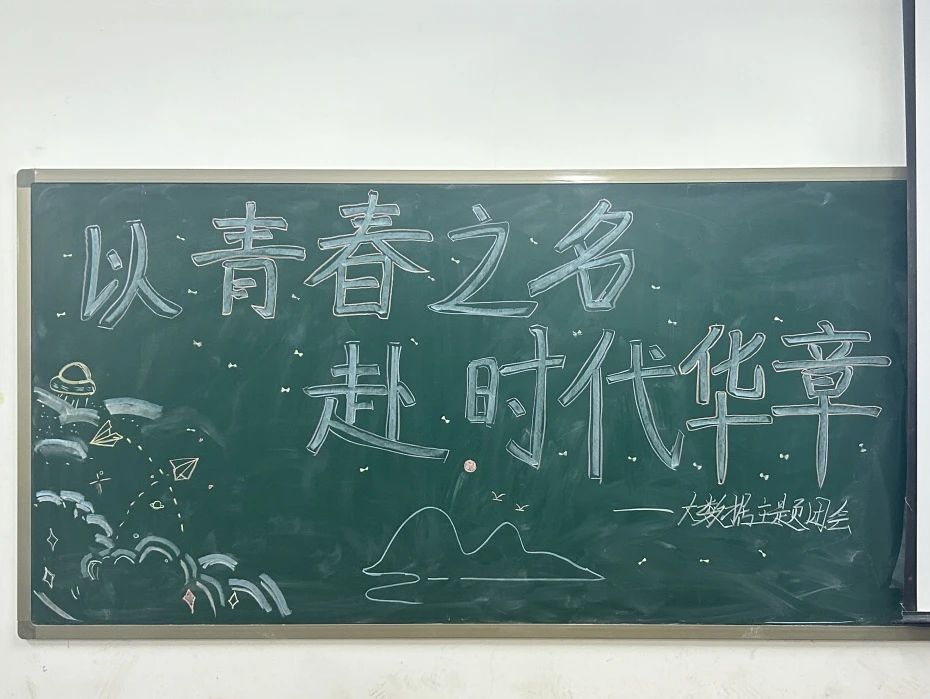 以青春之名
赴时代华章
——大数据主题团会